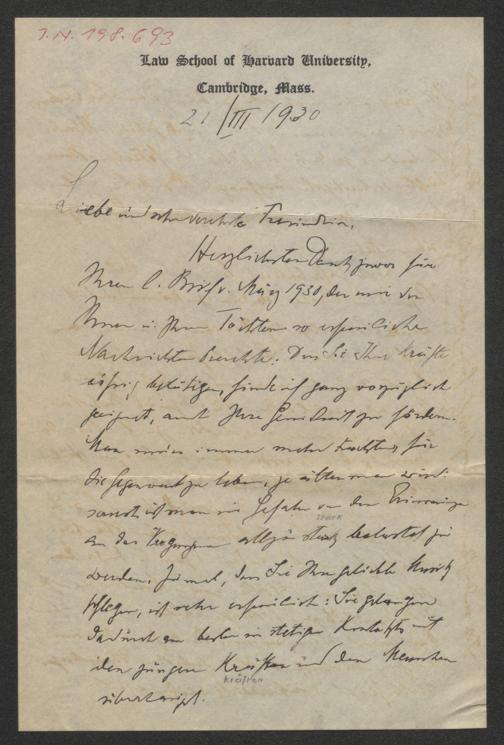 I.N. 198.693
Law School of Harvard University,
Cambridge, Mass.
21/III/1930
Liebe und sehr verehrte Freundin,
Herzlichsten Dank zuvor für
Ihren l. Brief v. März 1930, der mir von
Ihnen u. Ihren Töchtern so erfreuliche
Nachrichten brachte. Dass Sie Ihre Kräfte
eifrig betätigen, finde ich ganz vorzüglich
geeignet, auch Ihre Gesundheit zu fördern.
Man muss immer mehr trachten, für
die Gegenwart zu leben, je älter man wird:
sonst ist man in Gefahr von den Erinnerungen
stark
an das Vergangene allzu stark belastet zu
werden. Zumal, dass Sie Ihre geliebte Musik
pflegen, ist sehr erfreulich: Sie gelangen
dadurch am besten in stetigen Kontakt mit
den jungen Kräften und den Menschen
kräften
überhaupt.